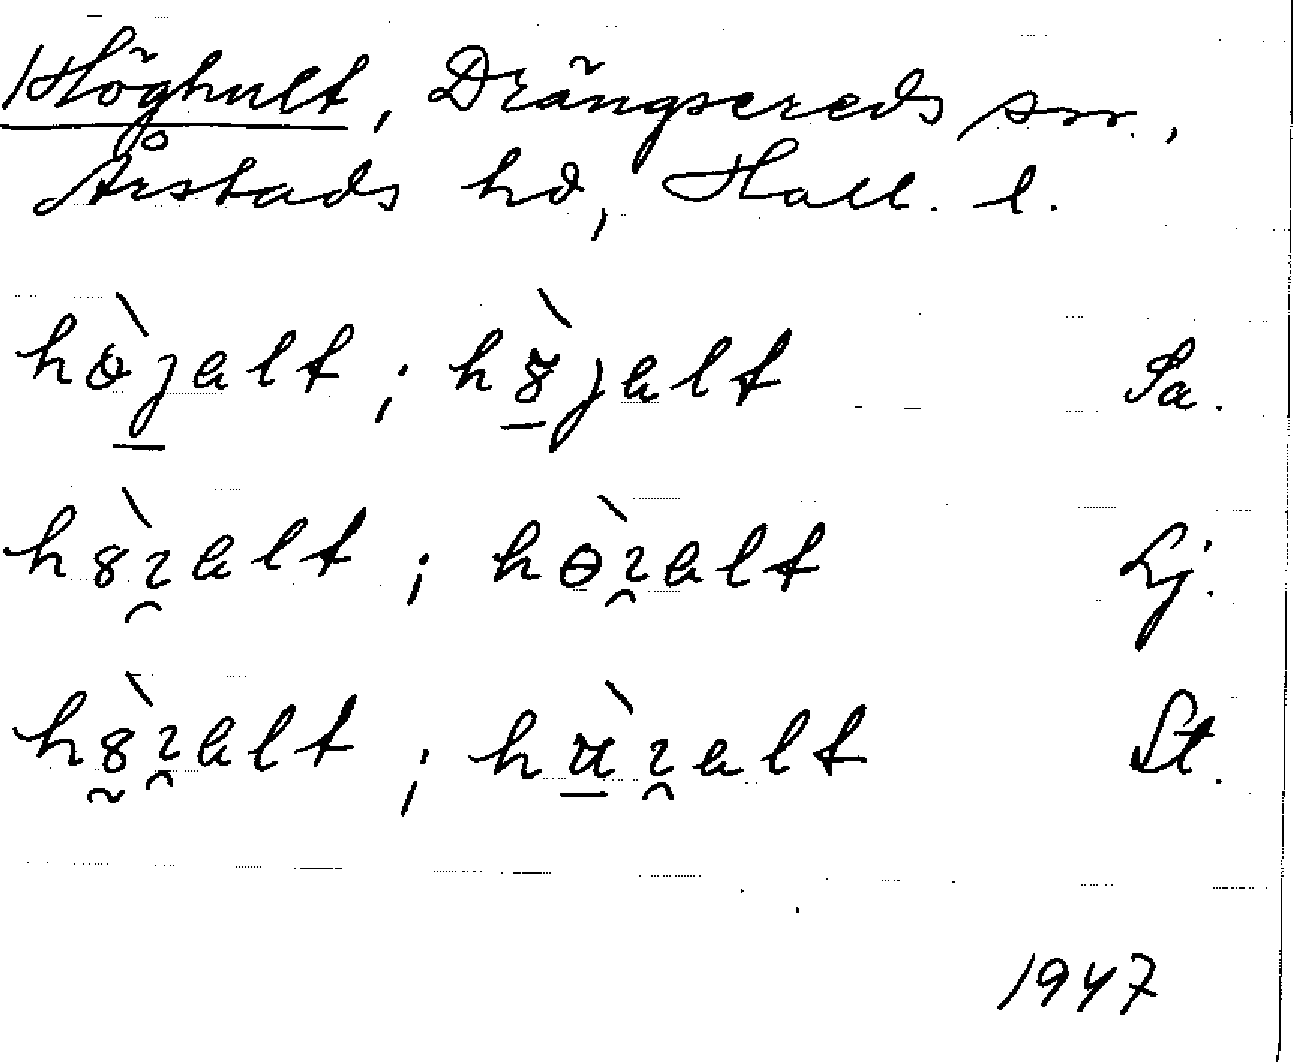 Höghult, Drängsereds sn.,
Årstads hd, Hall. l.
hò̱jalt ; hỳ̱jalt Sa.
h8̀ꝛ̯alt ; hɵ̀ꝛ̯alt Lj.
h8̰̀ꝛ̯alt ; hṳ̀ꝛ̯alt St.
1947